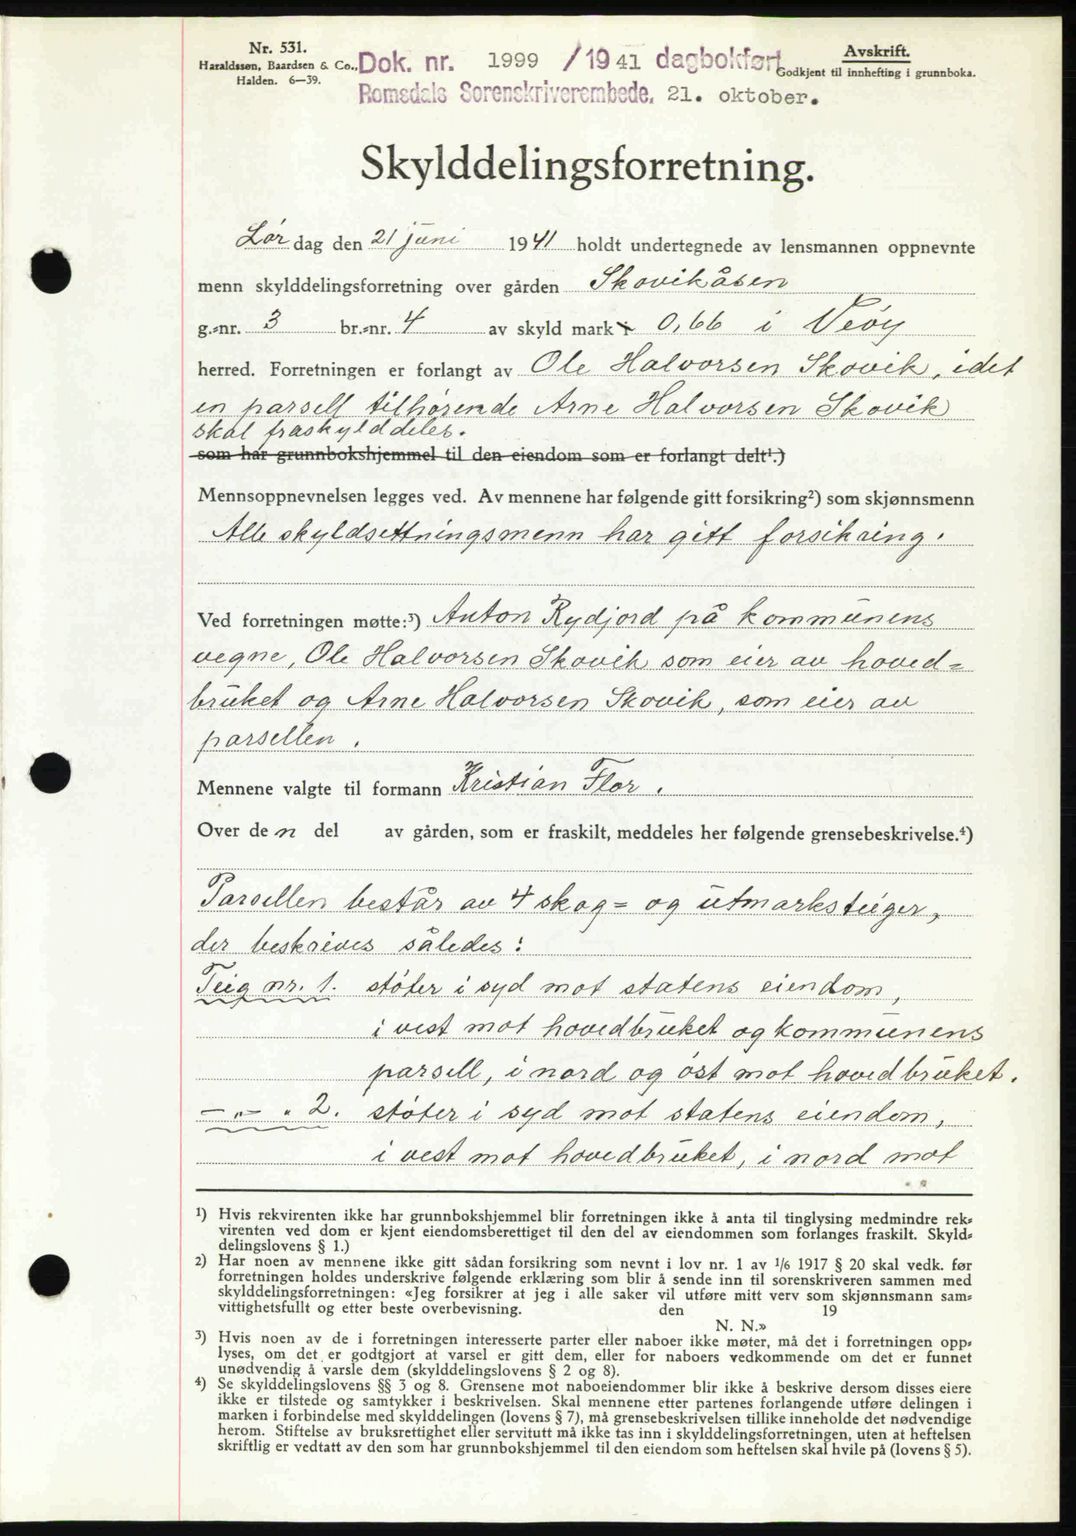 Nr. 531.
Haraldssøn, Baardsen & Co.,
Halden. 6—39.
Dok. nr. 1999 /1941 dagbokført
Romsdals Sorenskriverembede, 21. oktober.
Avskrift.
Godkjent til innhefting i grunnboka.
Skylddelingsforretning.
Lør dag den 21 juni 1941 holdt undertegnede av lensmannen oppnevnte
menn skylddelingsforretning over gården Skovikåsen
g.-nr. 3 br.-nr. 4 av skyld mark 0,66 i Veøy
herred. Forretningen er forlangt av Ole Halvorsen Skovik, idet
en parsell tilhørende Arne Halvorsen Skovik
skal fraskylddeles.
som har grunnbokshjemmel til den eiendom som er forlangt delt¹.)
Mennsoppnevnelsen legges ved. Av mennene har følgende gitt forsikring²) som skjønnsmenn
Alle skyldsettningsmenn har gitt forsikring.
Ved forretningen møtte:³) Anton Rydjord på kommunens
vegne, Ole Halvorsen Skovik som eier av hoved=
bruket og Arne Halvorsen Skovik, som eier av
parsellen.
Mennene valgte til formann Kristian Flor.
Over de n del av gården, som er fraskilt, meddeles her følgende grensebeskrivelse.⁴)
Parsellen består av 4 skog= og utmarksteiger,
der beskrives således:
Teig nr. 1. støter i syd mot statens eiendom,
i vest mot hovedbruket og kommunens
parsell, i nord og øst mot hovedbruket.
—„— „ 2. støter i syd mot statens eiendom,
i vest mot hovedbruket, i nord mot
¹) Hvis rekvirenten ikke har grunnbokshjemmel blir forretningen ikke å anta til tinglysing medmindre rek-
virenten ved dom er kjent eiendomsberettiget til den del av eiendommen som forlanges fraskilt. Skyld-
delingslovens § 1.)
²) Har noen av mennene ikke gitt sådan forsikring som nevnt i lov nr. 1 av 1/6 1917 § 20 skal vedk. før
forretningen holdes underskrive følgende erklæring som blir å sende inn til sorenskriveren sammen med
skylddelingsforretningen: «Jeg forsikrer at jeg i alle saker vil utføre mitt verv som skjønnsmann sam-
vittighetsfullt og etter beste overbevisning. den 19
N. N.»
³) Hvis noen av de i forretningen interesserte parter eller naboer ikke møter, må det i forretningen opp-
lyses, om det er godtgjort at varsel er gitt dem, eller for naboers vedkommende om det er funnet
unødvendig å varsle dem (skylddelingslovens § 2 og 8).
⁴) Se skylddelingslovens §§ 3 og 8. Grensene mot naboeiendommer blir ikke å beskrive dersom disses eiere
ikke er tilstede og samtykker i beskrivelsen. Skal mennene etter partenes forlangende utføre delingen i
marken i forbindelse med skylddelingen (lovens § 7), må grensebeskrivelsen tillike inneholde det nødvendige
herom. Stiftelse av bruksrettighet eller servitutt må ikke tas inn i skylddelingsforretningen, uten at heftelsen
skriftlig er vedtatt av den som har grunnbokshjemmel til den eiendom som heftelsen skal hvile på (lovens § 5).